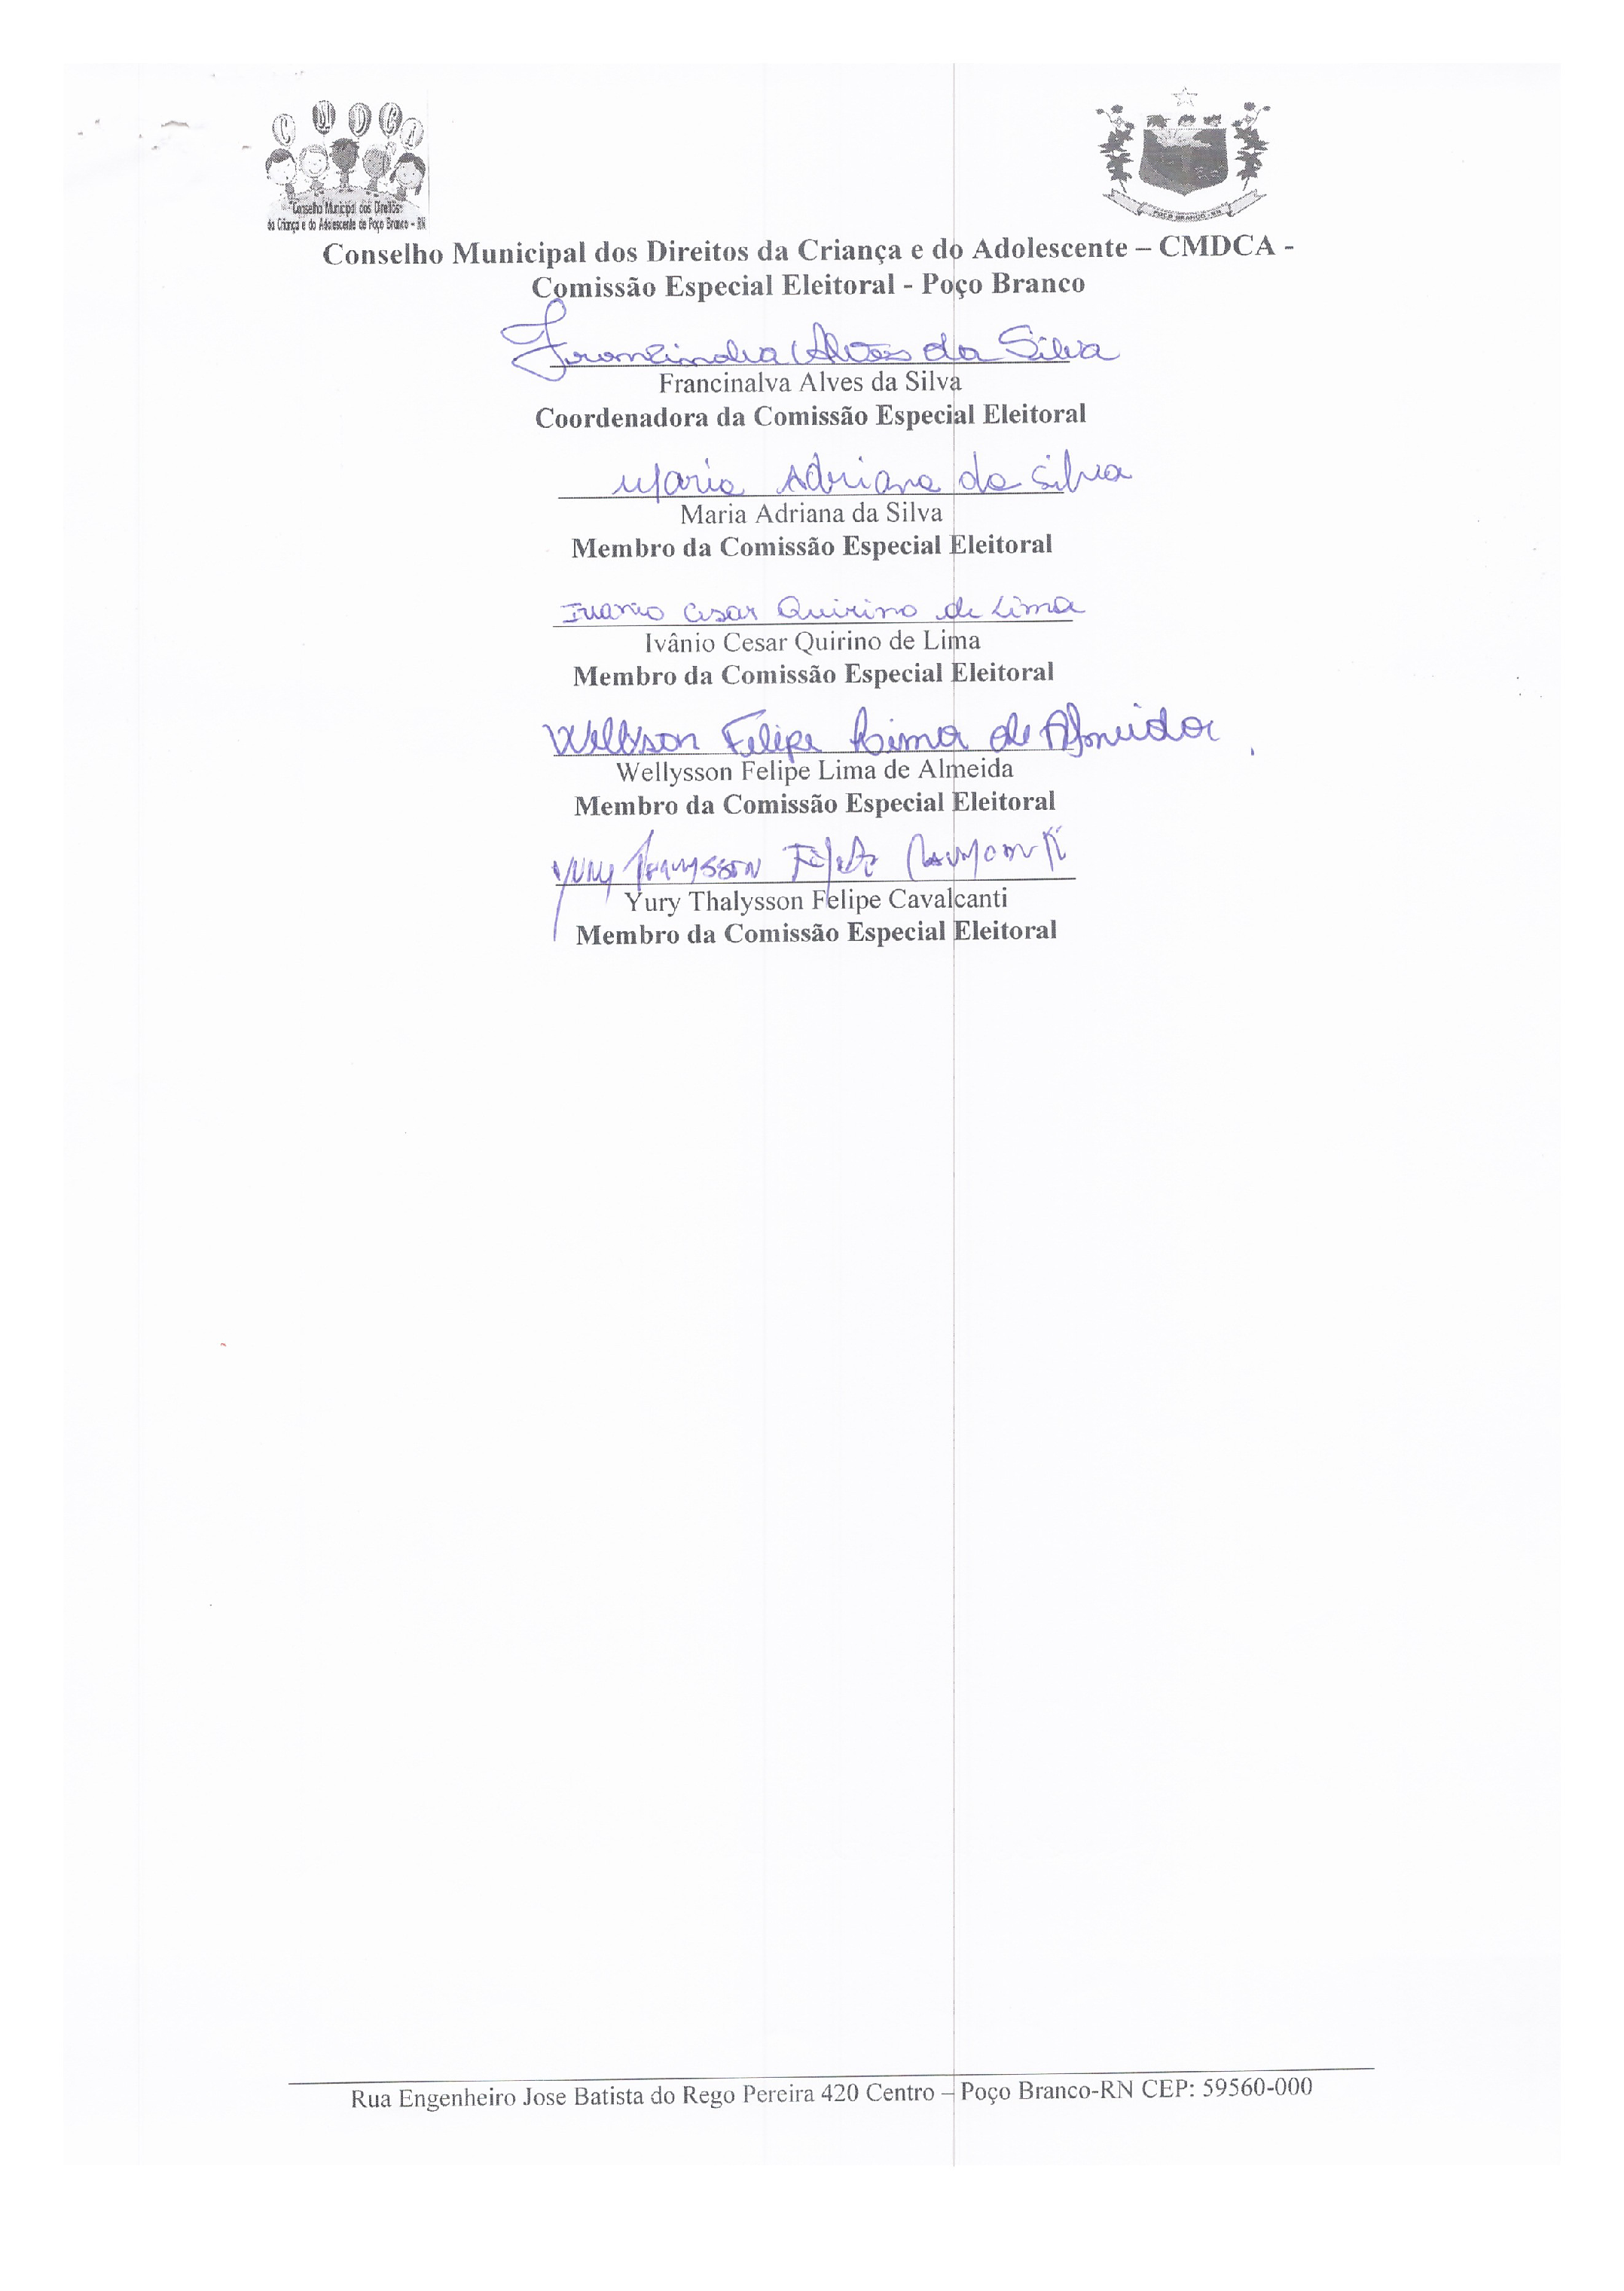 C M D C A
Conselho Municipal dos Direitos
da Criança e do Adolescente de Poço Branco - RN
POÇO BRANCO-RN
Conselho Municipal dos Direitos da Criança e do Adolescente – CMDCA -
Comissão Especial Eleitoral - Poço Branco
Francinalva Alves da Silva
Francinalva Alves da Silva
Coordenadora da Comissão Especial Eleitoral
Maria Adriana da Silva
Maria Adriana da Silva
Membro da Comissão Especial Eleitoral
Ivanio Cesar Quirino de Lima
Ivânio Cesar Quirino de Lima
Membro da Comissão Especial Eleitoral
Wellysson Felipe Lima de Almeida
Wellysson Felipe Lima de Almeida
Membro da Comissão Especial Eleitoral
Yury Thalysson Felipe Cavalcanti
Yury Thalysson Felipe Cavalcanti
Membro da Comissão Especial Eleitoral
Rua Engenheiro Jose Batista do Rego Pereira 420 Centro – Poço Branco-RN CEP: 59560-000